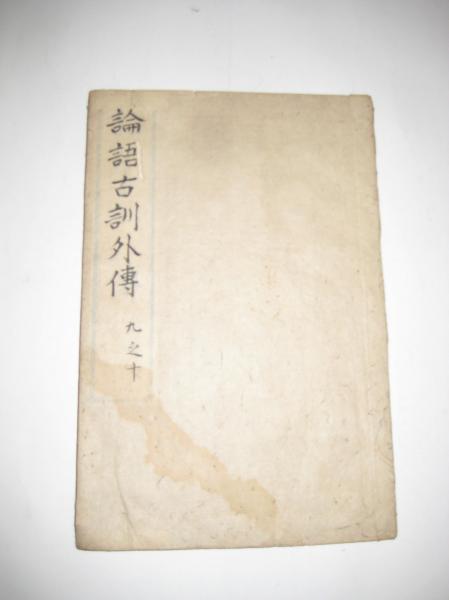 論語古訓外傳 九之十